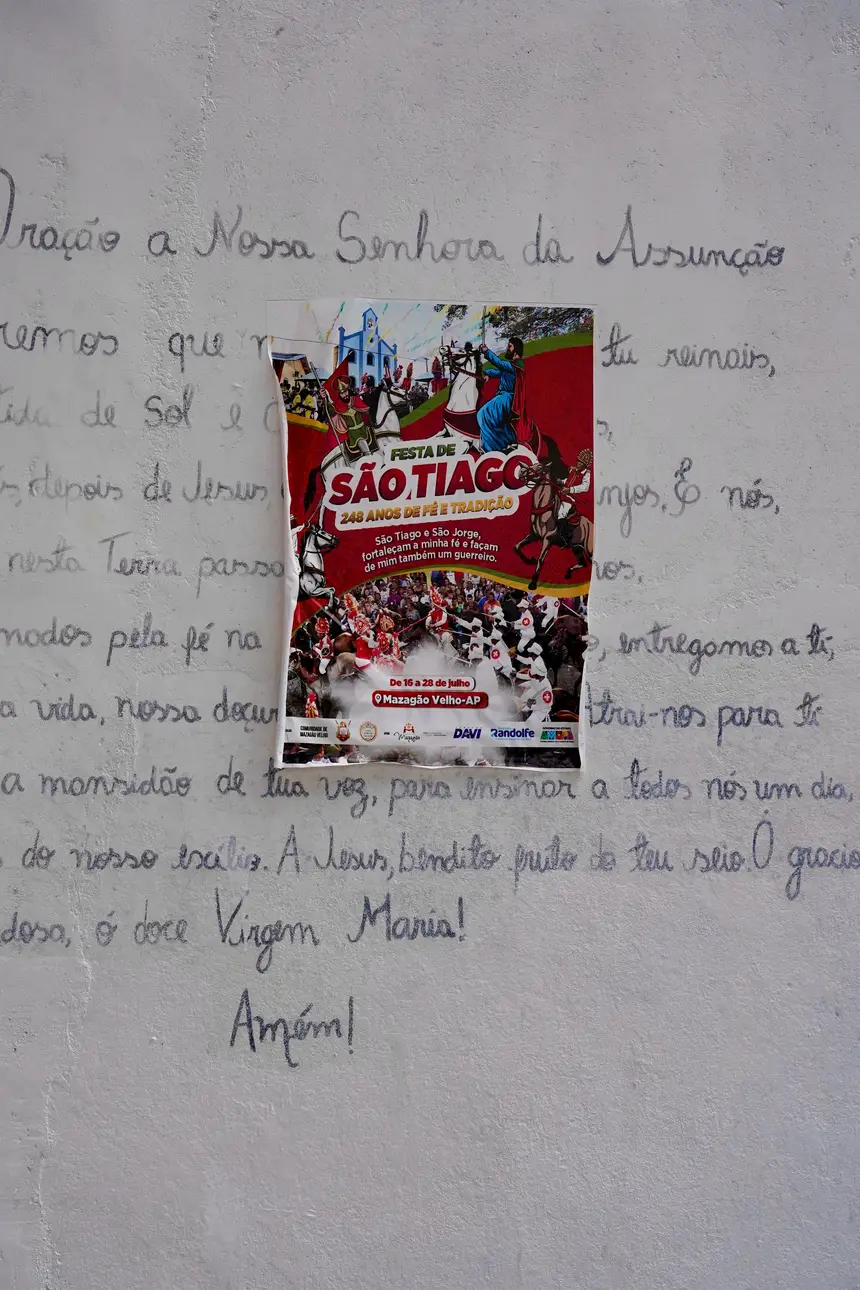 Oração a Nossa Senhora da Assunção
remos que tu reinais,
de Sol e
depois de Jesus, njos. E nós,
nesta Terra
pela fé na entregamos a ti,
a vida, nossa Atrai-nos para ti
a mansidão de tua voz, para ensinar a todos nós um dia,
do nosso escílio. A Jesus, bendito fruto do teu seio. Ó
dosa, ó doce Virgem Maria!
Amém!
FESTA DE
SÃO TIAGO
248 ANOS DE FÉ E TRADIÇÃO
São Tiago e São Jorge,
fortaleçam a minha fé e façam
de mim também um guerreiro.
De 16 a 28 de julho
Mazagão Velho-AP
COMUNIDADE DE
MAZAGÃO VELHO
Mazagão
DAVI
Randolfe